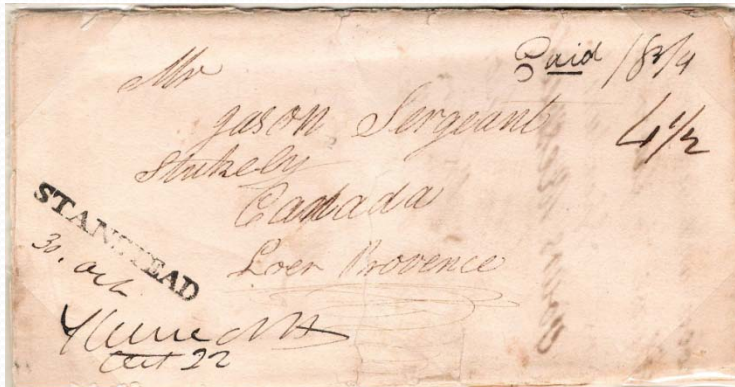 Paid 18 3/4
Mr
Jason Sergeant
4 1/2
Stukely
Canada
Loer Provence
STANSTEAD
30. Oct
Oct 22